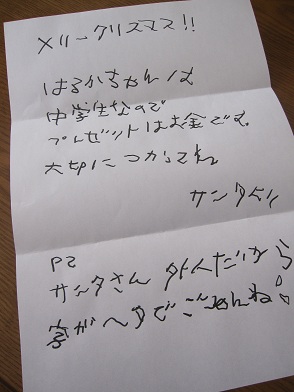 メリークリスマス!!
はるかちゃんは
中学生なので
プレゼットはお金です。
大切につかってね
サンタより
PS
サンタさん 外人だから
字がへタでごめんね!